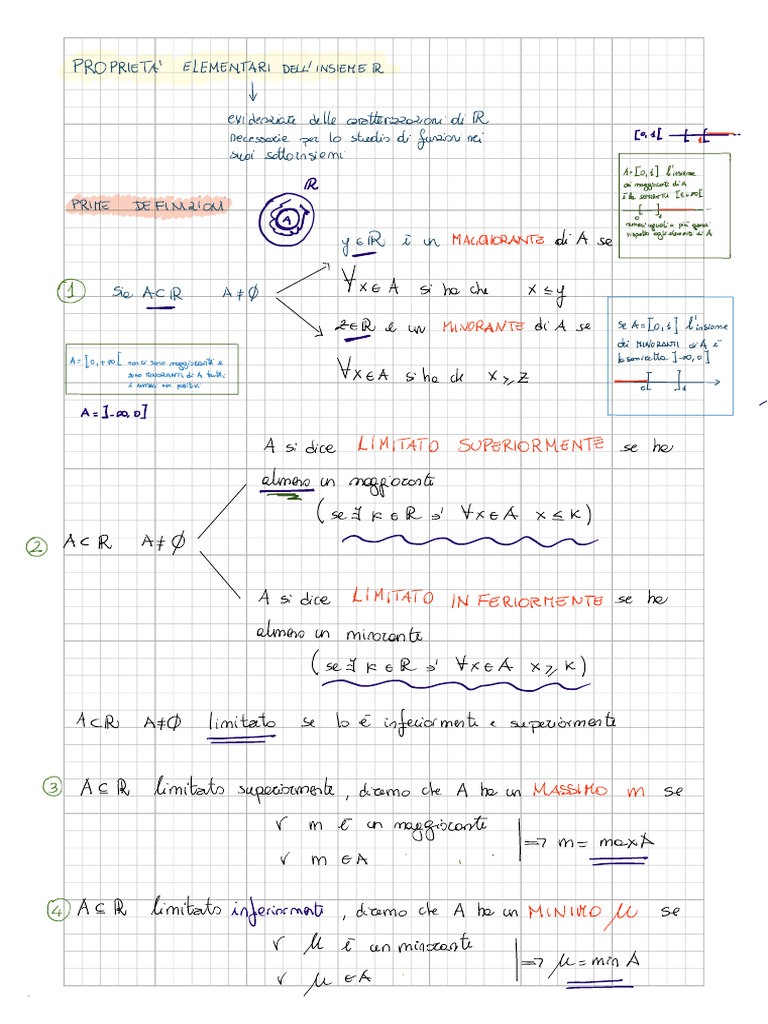 PROPRIETA' ELEMENTARI DELL'INSIEME ℝ
evidenziate delle caratterizzazioni di ℝ
necessarie per lo studio di funzioni nei
suoi sottoinsiemi
[0,1[
1
PRIME DEFINIZIONI
ℝ
A
A=[0,1] l'insieme
dei maggioranti di A
è la semiretta [1,+∞[
0 1
numeri uguali o più grandi
rispetto agli elementi di A
y∈ℝ è un MAGGIORANTE di A se
∀x∈A si ha che x≤y
① Sia A⊂ℝ A≠∅
z∈ℝ è un MINORANTE di A se
∀x∈A si ha che x≥z
se A=[0,1] l'insieme
di MINORANTI di A è
la semiretta ]-∞,0]
0 1
A=[0,+∞[ non ci sono maggioranti e
sono MINORANTI di A tutti
i numeri non positivi
A=]-∞,0]
A si dice LIMITATO SUPERIORMENTE se ha
almeno un maggiorante
(se ∃ k∈ℝ ∋' ∀x∈A x≤k)
② A⊂ℝ A≠∅
A si dice LIMITATO INFERIORMENTE se ha
almeno un minorante
(se ∃ k∈ℝ ∋' ∀x∈A x≥k)
A⊂ℝ A≠∅ limitato se lo è inferiormente e superiormente
③ A⊆ℝ limitato superiormente, diremo che A ha un MASSIMO m se
√ m è un maggiorante
√ m∈A
|⇒ m = max A
④ A⊆ℝ limitato inferiormente, diremo che A ha un MINIMO μ se
√ μ è un minorante
√ μ∈A
|⇒ μ = min A